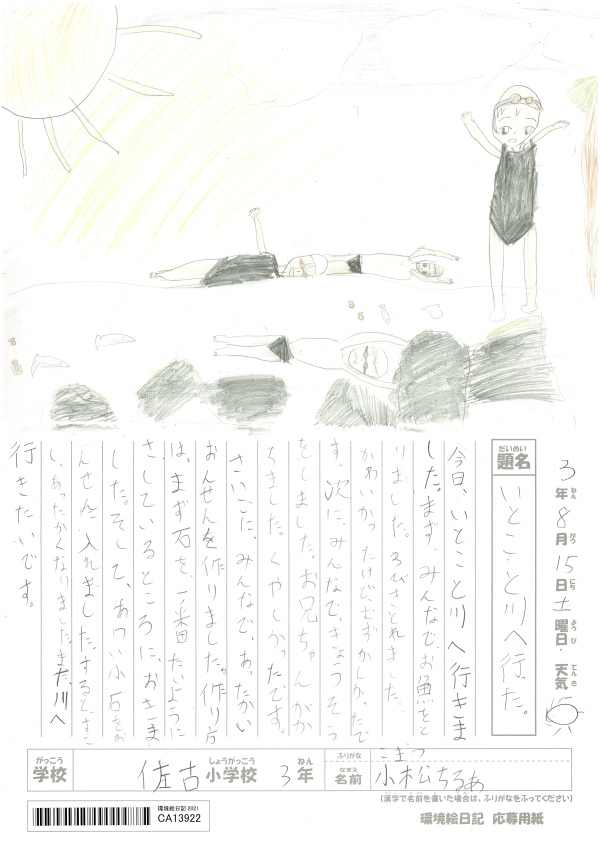 3年8月15日土曜日・天気
ねん がつ にち ようび てんき
だいめい
題名
いとこ、と川へ行た。
今日、いとこと川へ行きま
した。まず、みんなで、お魚をと
りました。3びきとれました。
かわいかったけど、むずかしかったで
す。次に、みんなで、きょうそう
をしました。お兄ちゃんがか
ちました。くやしかったです。
さいごに、みんなで、あったかい
おんせんを作りました。作り方
は、まず石を、一番たいように
さしているところに、おきま
した。そして、あつい小石をお
んせんに入れました。すると、すこ
し、あったかくなりました。また、川へ
行きたいです。
がっこう
学校
佐古小学校 3年
しょうがっこう ねん
ふりがな こまつ
なまえ
名前
小松ちるあ
(漢字で名前を書いた場合は、ふりがなをふってください)
環境絵日記 2021
CA13922
環境絵日記 応募用紙